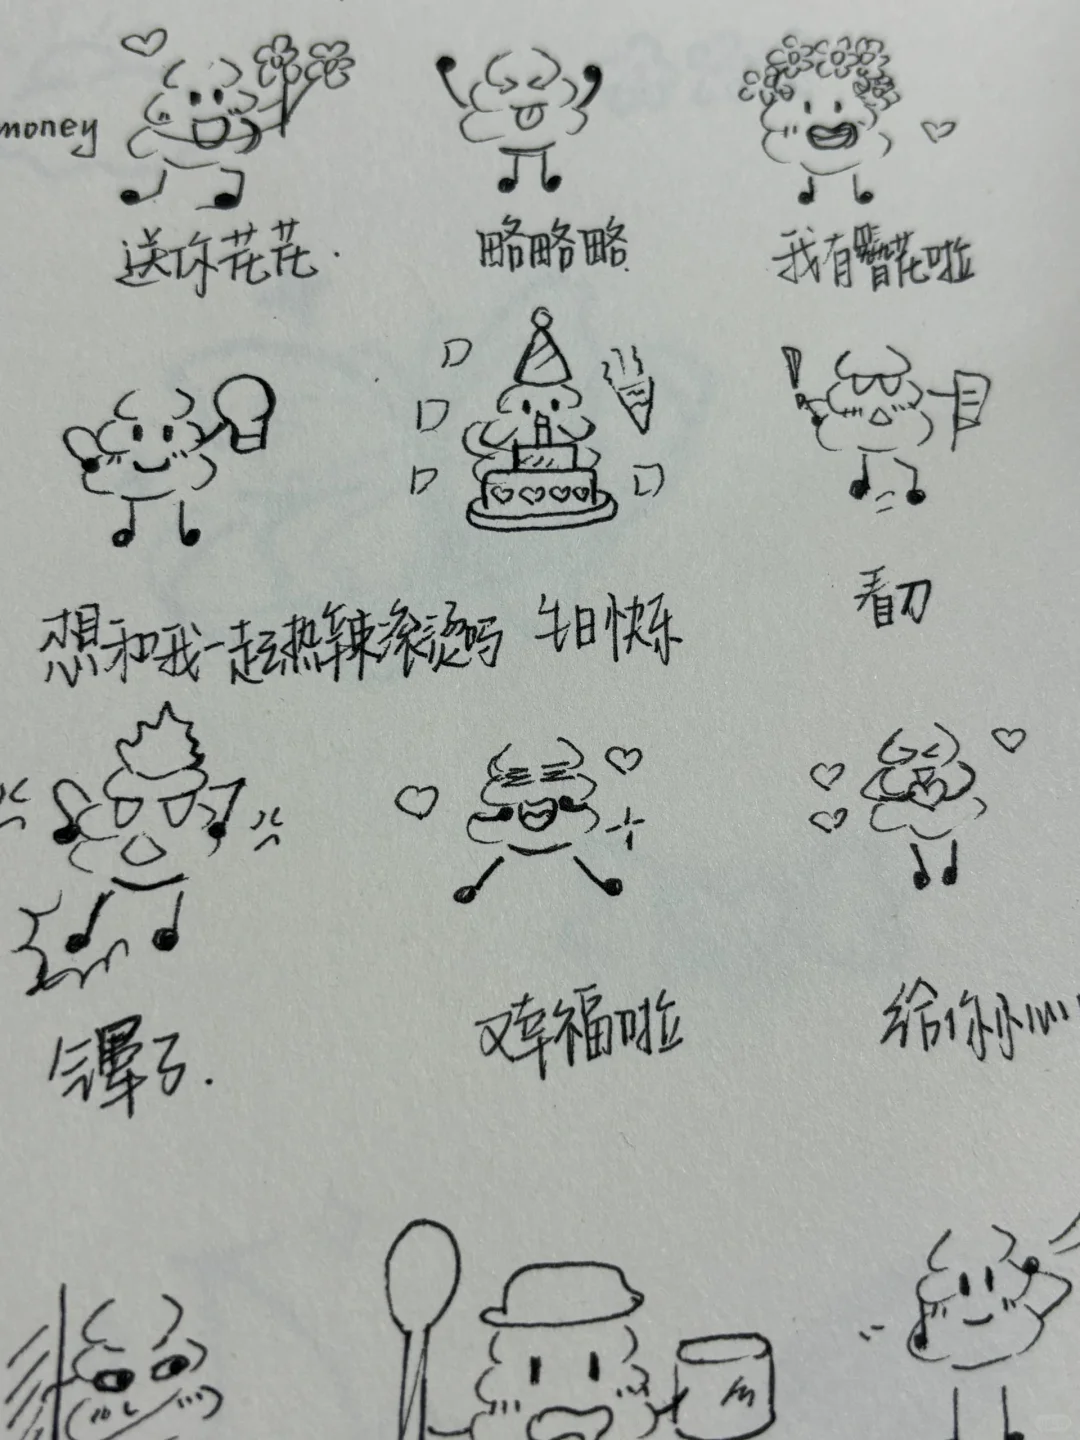 money
送你花花.
略略略.
我有簪花啦
想和我一起热辣滚烫吗
生日快乐
看刀
又幸福啦
给你小心心
m